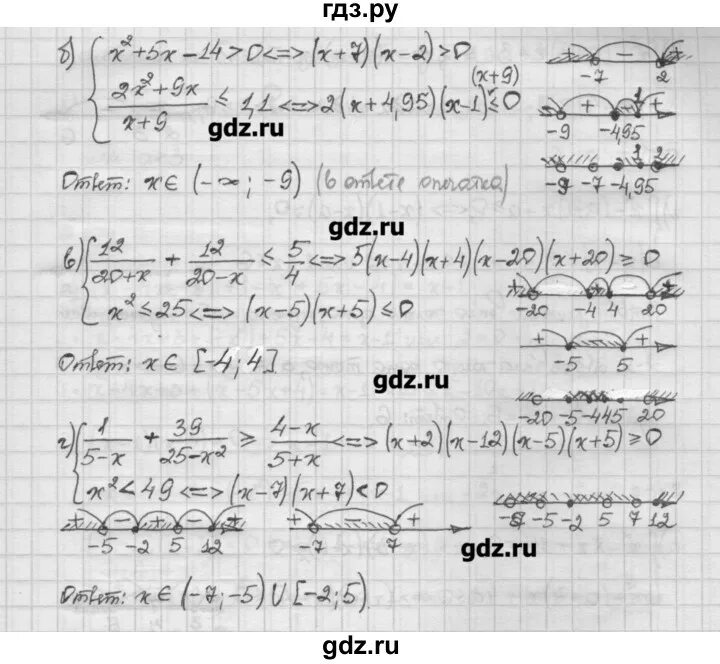 гдз.ру
б) { x²+5x-14>0 <=> (x+7)(x-2)>0
(2x²+9x)/(x+9) ≤ 1,1 <=> 2(x+4,95)(x-1)(x+9) ≤ 0
+ - +
-7 2
+ - 1
-9 -4,95
1 2
-9 -7 -4,95
gdz.ru
Ответ: x∈ (-∞; -9) (в ответе опечатка)
gdz.ru
в) { 12/(20+x) + 12/(20-x) ≤ 5/4 <=> 5(x-4)(x+4)(x-20)(x+20) ≥ 0
x² ≤ 25 <=> (x-5)(x+5) ≤ 0
-20 -4 4 20
+ - +
-5 5
Ответ: x∈ [-4; 4]
gdz.ru
-20 -5 -4 4 5 20
г) { 1/(5-x) + 39/(25-x²) ≥ (4-x)/(5+x) <=> (x+2)(x-12)(x-5)(x+5) ≥ 0
x² < 49 <=> (x-7)(x+7) < 0
+ - + - +
-5 -2 5 12
+ - +
-7 7
-5 -2 5 7 12
gdz.ru
Ответ: x∈ (-7; -5) U [-2; 5).
gdz.ru